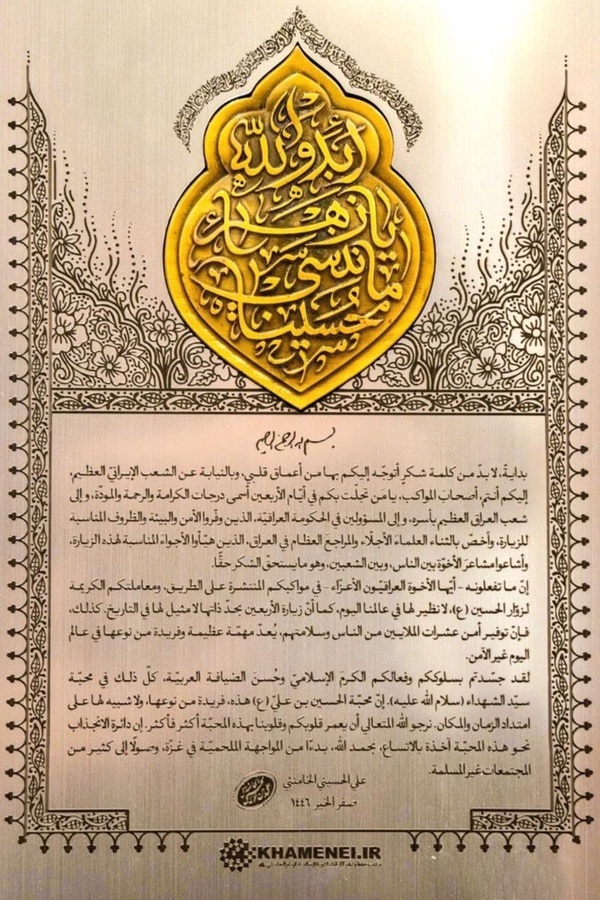 أبد والله
يا زهراء
ما ننسى
حسينا
بسم الله الرحمن الرحيم
بدايةً، لا بدّ من كلمة شكرٍ أتوجّه إليكم بها من أعماق قلبي، وبالنيابة عن الشعب الإيرانيّ العظيم،
إليكم أنتم، أصحابَ المواكب، يا مَن تجلّت بكم في أيّام الأربعين أسمى درجات الكرامة والرحمة والمودّة، و إلى
شعب العراق العظيم بأسره، و إلى المسؤولين في الحكومة العراقيّة، الذين وفّروا الأمن والبيئة والظروف المناسبة
للزيارة، وأخصّ بالثناء العلماءَ الأجلّاء والمراجع العظام في العراق، الذين هيّأوا الأجواءَ المناسبة لهذه الزيارة،
وأشاعوا مشاعرَ الأخوّة بين الناس، وبين الشعبين، وهو ما يستحقّ الشكر حقًّا.
إنّ ما تفعلونه - أيّها الأخوة العراقيّون الأعزّاء - في مواكبكم المنتشرة على الطريق، ومعاملتكم الكريمة
لزوّار الحسين (ع)، لا نظير لها في عالمنا اليوم، كما أنّ زيارة الأربعين بحدّ ذاتها لا مثيل لها في التاريخ. كذلك،
فإنّ توفير أمن عشرات الملايين من الناس وسلامتهم، يُعدّ مهمّة عظيمة وفريدة من نوعها في عالم
اليوم غير الآمن.
لقد جسّدتم بسلوككم وفعالكم الكرمَ الإسلاميّ وحُسنَ الضيافة العربيّة، كلّ ذلك في محبّة
سيّد الشهداء (سلام الله عليه). إنّ محبّة الحسين بن عليّ (ع) هذه، فريدة من نوعها، ولا شبيه لها على
امتداد الزمان والمكان. نرجو الله المتعالي أن يعمر قلوبكم وقلوبنا بهذه المحبّة أكثر فأكثر. إن دائرة الانجذاب
نحو هذه المحبّة آخذة بالاتساع، بحمد الله، بدءًا من المواجهة الملحميّة في غزّة، وصولًا إلى كثير من
المجتمعات غير المسلمة.
علي الحسيني الخامنئي
صفر الخير ١٤٤٦
KHAMENEI.IR